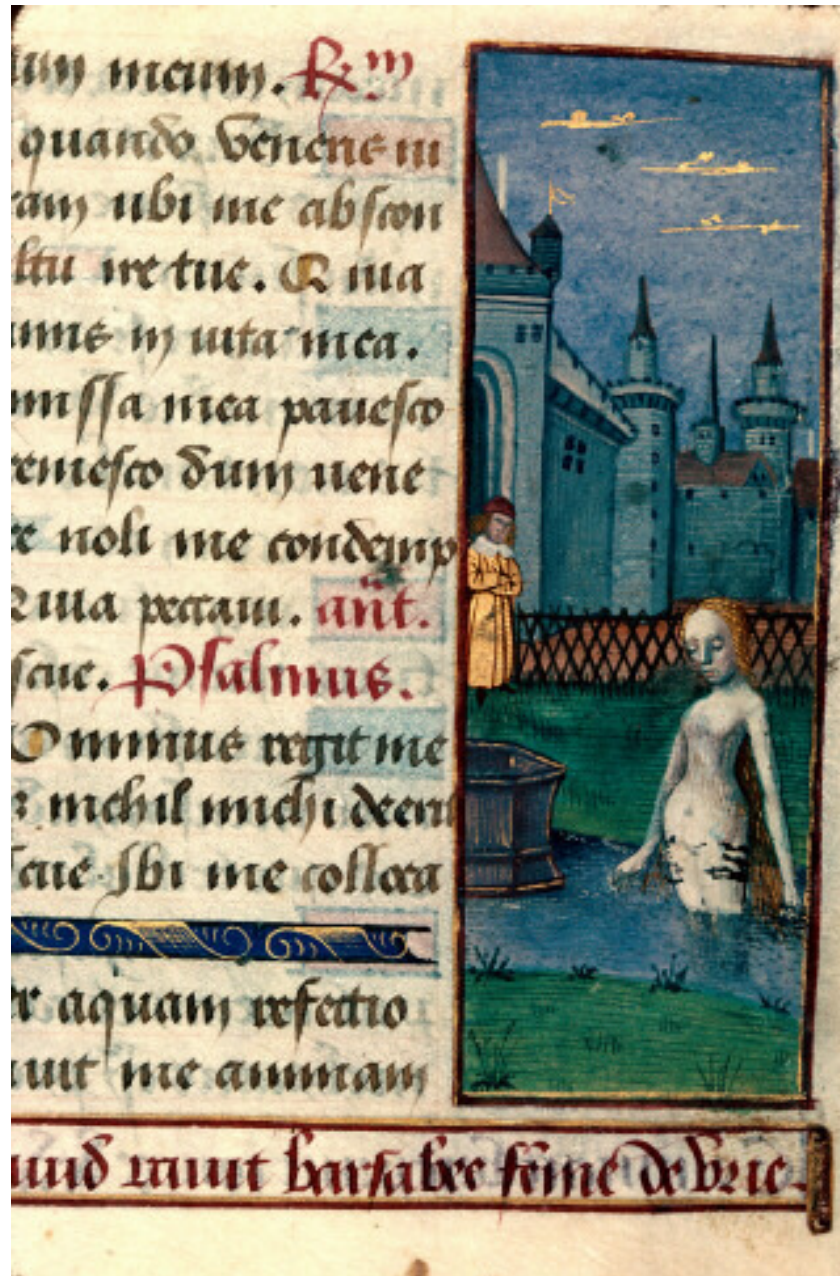 um meum. R.m
quando veneris in
ram ubi me abscon
ltu ire tue. Quia
nimis in uita mea.
missa mea pavesco
dum uene
re noli me condemp
Quia peccaui. añt.
scue. Psalmus.
Dominus regit me
nichil michi deerit
scue. Ibi me colloca
er aquam refectio
uit me animam
uid barsabee feme de Urie.